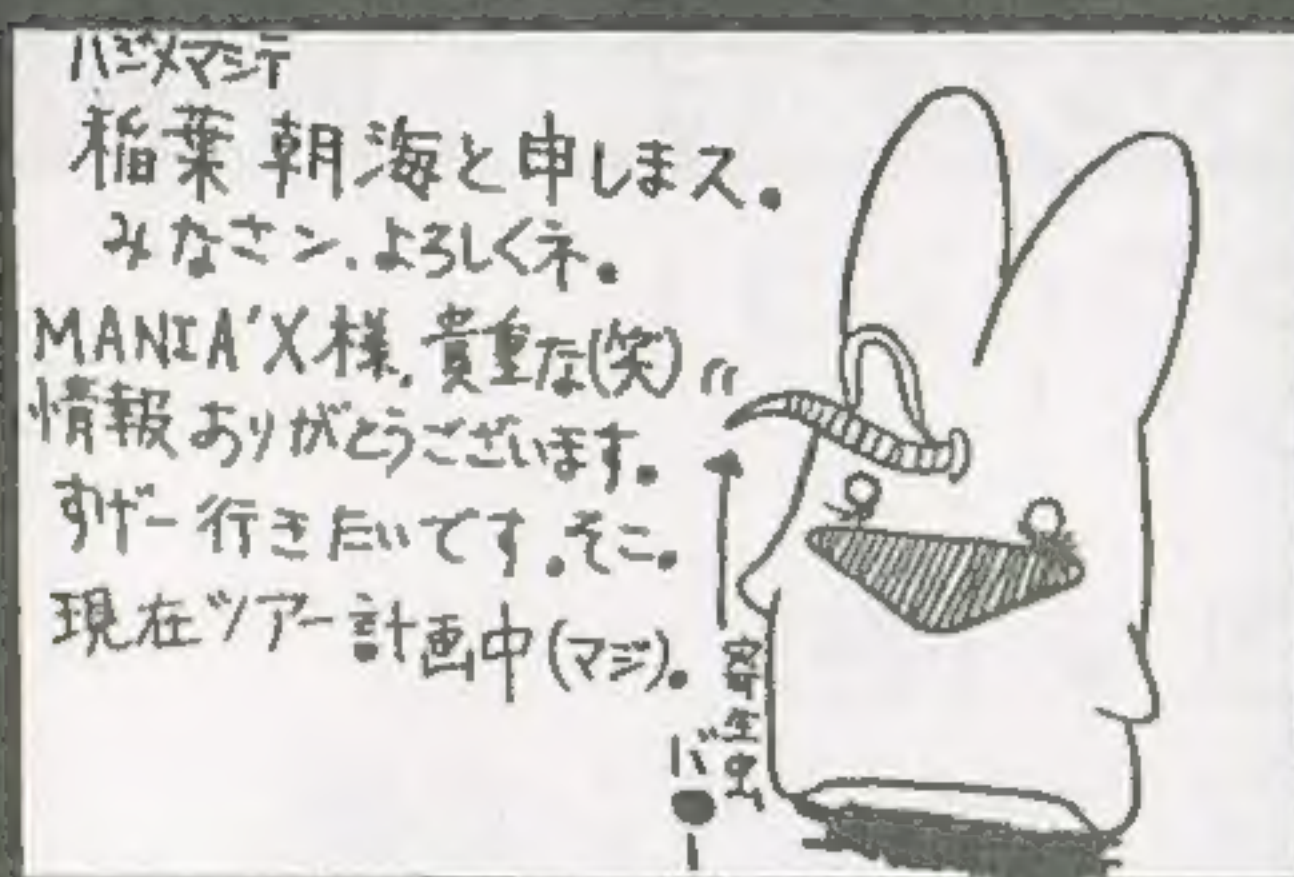 ハジメマシテ
稲葉 朝海と申しまス。
みなさン、よろしくネ。
MANIA'X様、貴重な(笑)
情報ありがとうございます。
すげー行きたいです、そこ。
現在ツアー計画中(マジ)。
寄生虫
バ●ー